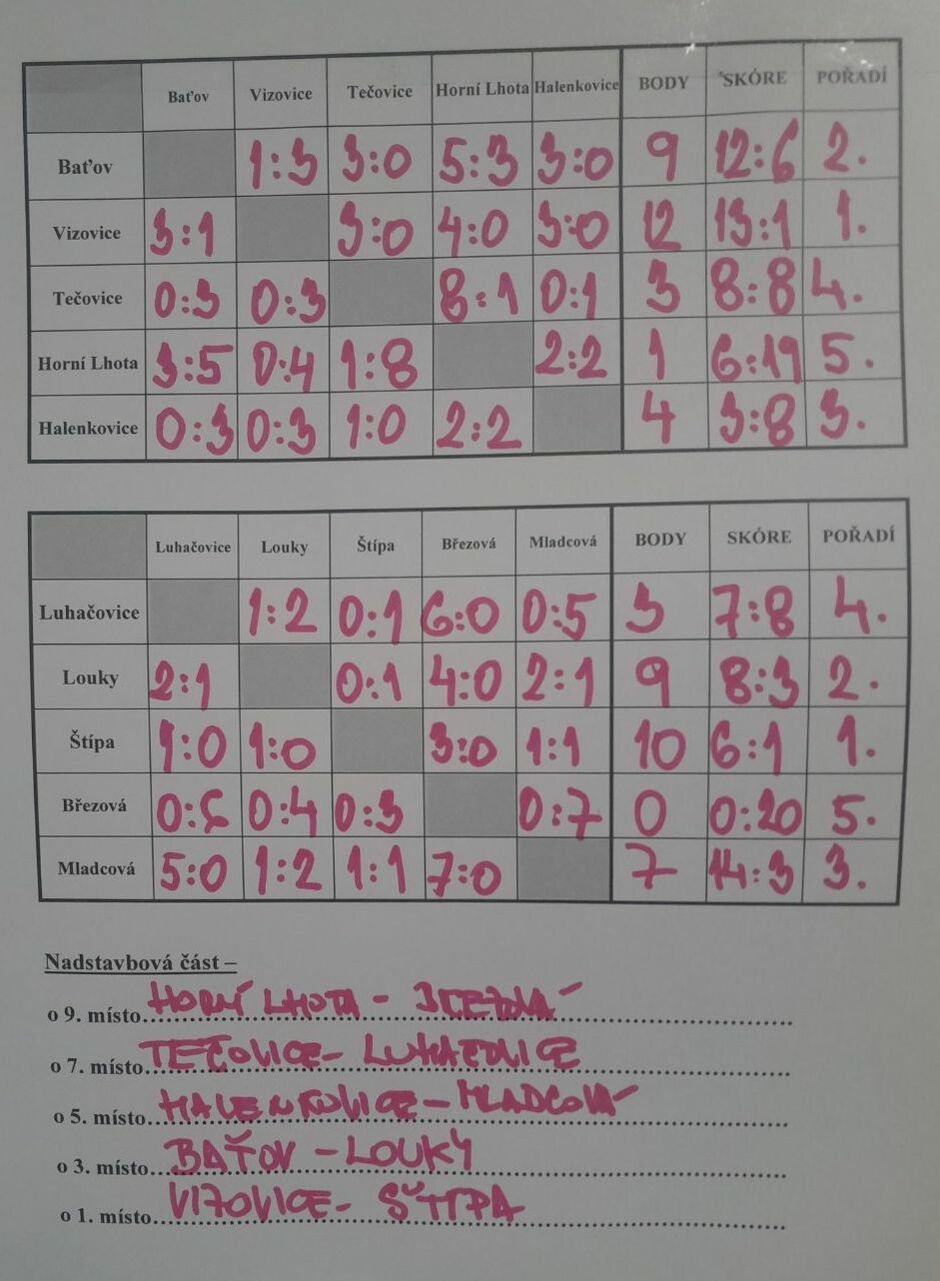 Baťov Vizovice Tečovice Horní Lhota Halenkovice BODY SKÓRE POŘADÍ
Baťov 1:3 3:0 5:3 3:0 9 12:6 2.
Vizovice 3:1 3:0 4:0 3:0 12 13:1 1.
Tečovice 0:3 0:3 8:1 0:1 3 8:8 4.
Horní Lhota 3:5 0:4 1:8 2:2 1 6:19 5.
Halenkovice 0:3 0:3 1:0 2:2 4 3:8 3.
Luhačovice Louky Štípa Březová Mladcová BODY SKÓRE POŘADÍ
Luhačovice 1:2 0:1 6:0 0:5 3 7:8 4.
Louky 2:1 0:1 4:0 2:1 9 8:3 2.
Štípa 1:0 1:0 3:0 1:1 10 6:1 1.
Březová 0:6 0:4 0:3 0:7 0 0:20 5.
Mladcová 5:0 1:2 1:1 7:0 7 14:3 3.
Nadstavbová část –
o 9. místo HORNÍ LHOTA - BŘEZOVÁ
o 7. místo TEČOVICE - LUHAČOVICE
o 5. místo HALENKOVICE - MLADCOVÁ
o 3. místo BAŤOV - LOUKY
o 1. místo VIZOVICE - ŠTÍPA